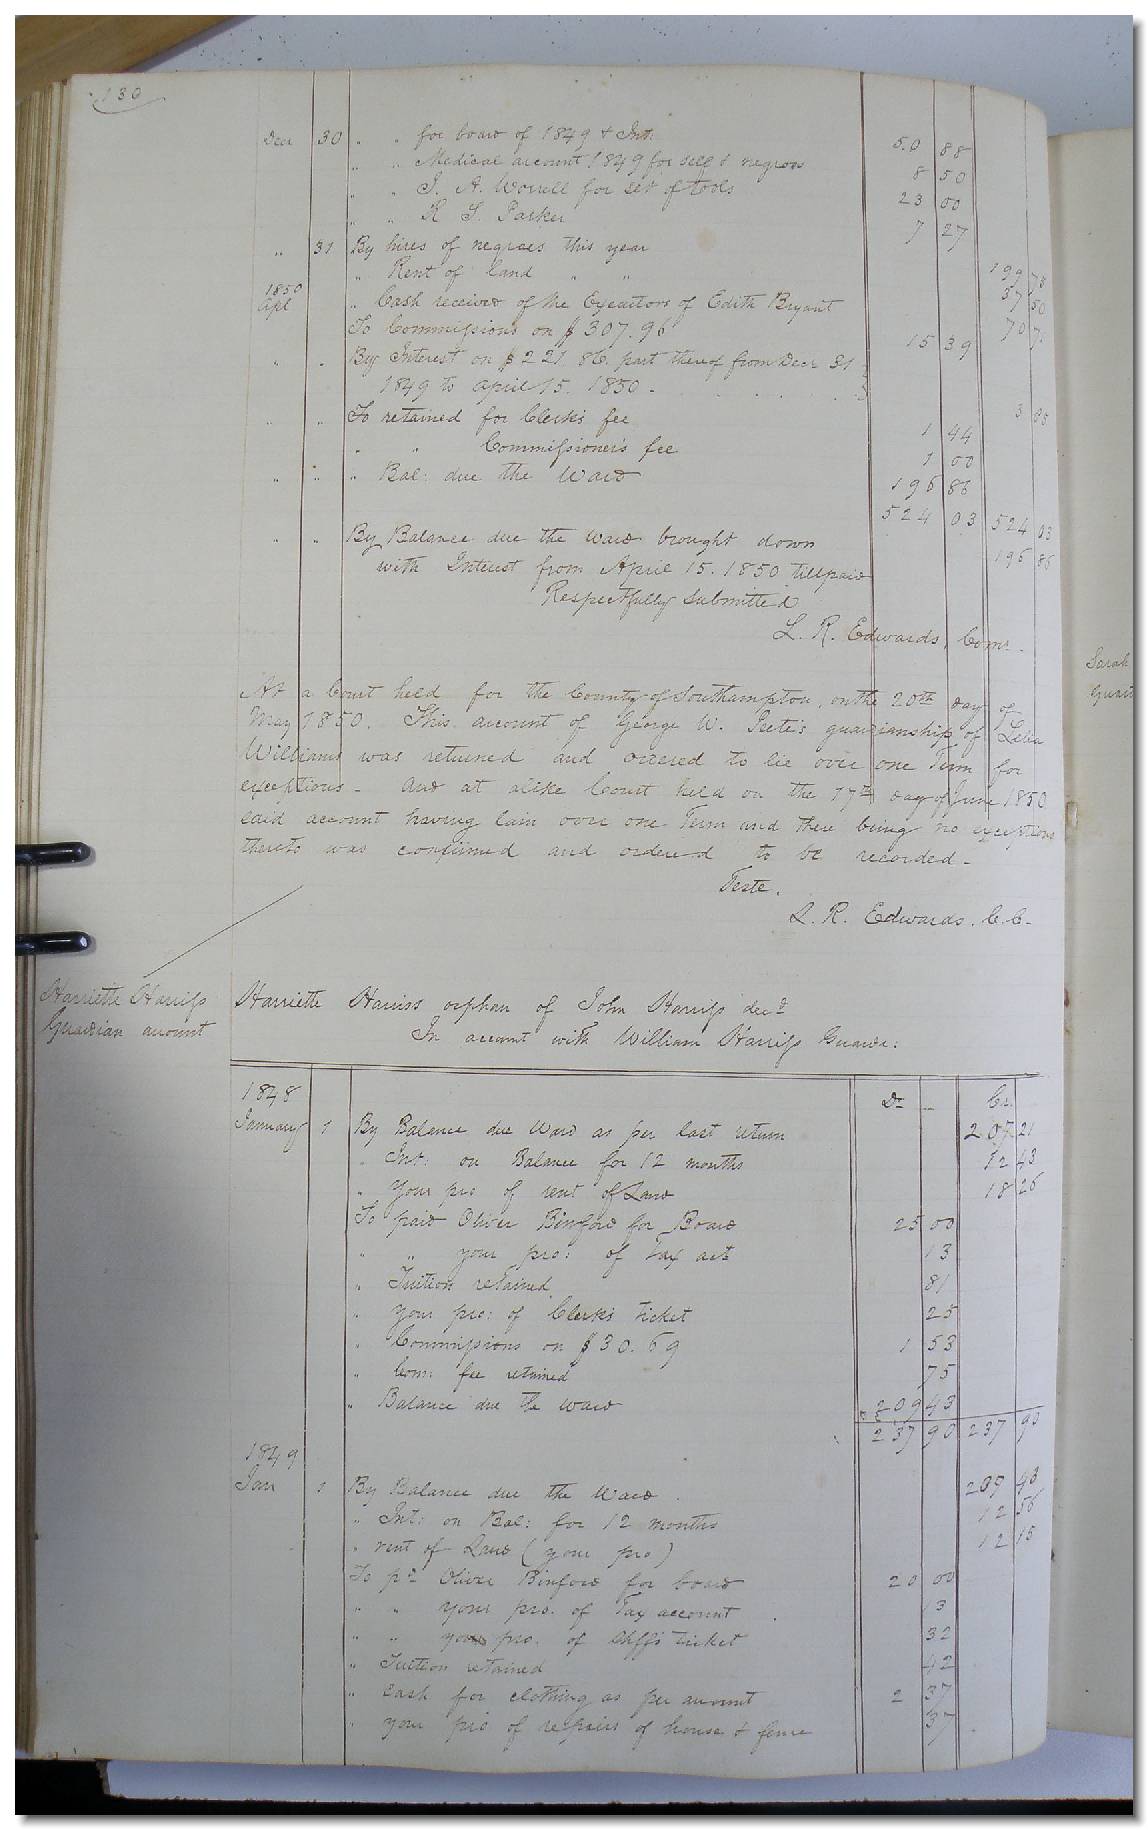 130
Decr 30 " " for board of 1849 & Int. 50 88
" " Medical account 1849 for self & negroes 8 50
" " J. A. Worrell for set of tools 23 00
" " R S. Parker 7 27
" 31 By hires of negroes this year 199 78
" Rent of land " " 37 50
1850
Apl " Cash received of the Executors of Edith Bryant 70 7.
To Commissions on $307.96 15 39
" " By Interest on $221.86 part thereof from Decr 31
1849 to April 15. 1850 - 3
" " To retained for Clerk's fee 1 44
" " Commissioner's fee 1 00
" " " Bal: due the Ward 196 86
524 03 524 03
" " By Balance due the ward brought down 196 86
with Interest from April 15. 1850 till paid
Respectfully submitted
L. R. Edwards, Comr.
At a Court held for the County of Southampton, on the 20th day of
May 1850. This account of George W. Peete's guardianship of Lelia
Williams was returned and ordered to lie over one Term for
exceptions - And at alike Court held on the 17th day of June 1850
said account having lain over one Term and there being no exceptions
thereto was confirmed and ordered to be recorded -
Teste.
L. R. Edwards. C.C.
Harriette Harriss
Guardian account
Harriette Harriss orphan of John Harriss decd
In account with William Harriss Guardn:
1848 Dr - Cr.
January 1 By Balance due Ward as per last return 207 21
" Int: on Balance for 12 months 12 43
" Your pro of rent of Land 18 26
To paid Oliver Binford for Board 25 00
" " your pro: of Tax act 13
" Tuition retained 81
" your pro: of Clerk's ticket 25
" Commissions on $30.69 1 53
" Com: fee retained 75
" Balance due the ward 209 43
237 90 237 90
1849
Jan 1 By Balance due the Ward 209 43
" Int: on Bal: for 12 months 12 56
" rent of Land (your pro) 12 15
To pd Oliver Binford for board 20 00
" " your pro. of Tax account 13
" " your pro. of Shffs ticket 32
" Tuition retained 42
" Cash for clothing as per account 2 37
" your pro of repairs of house & fence 37
Sarah